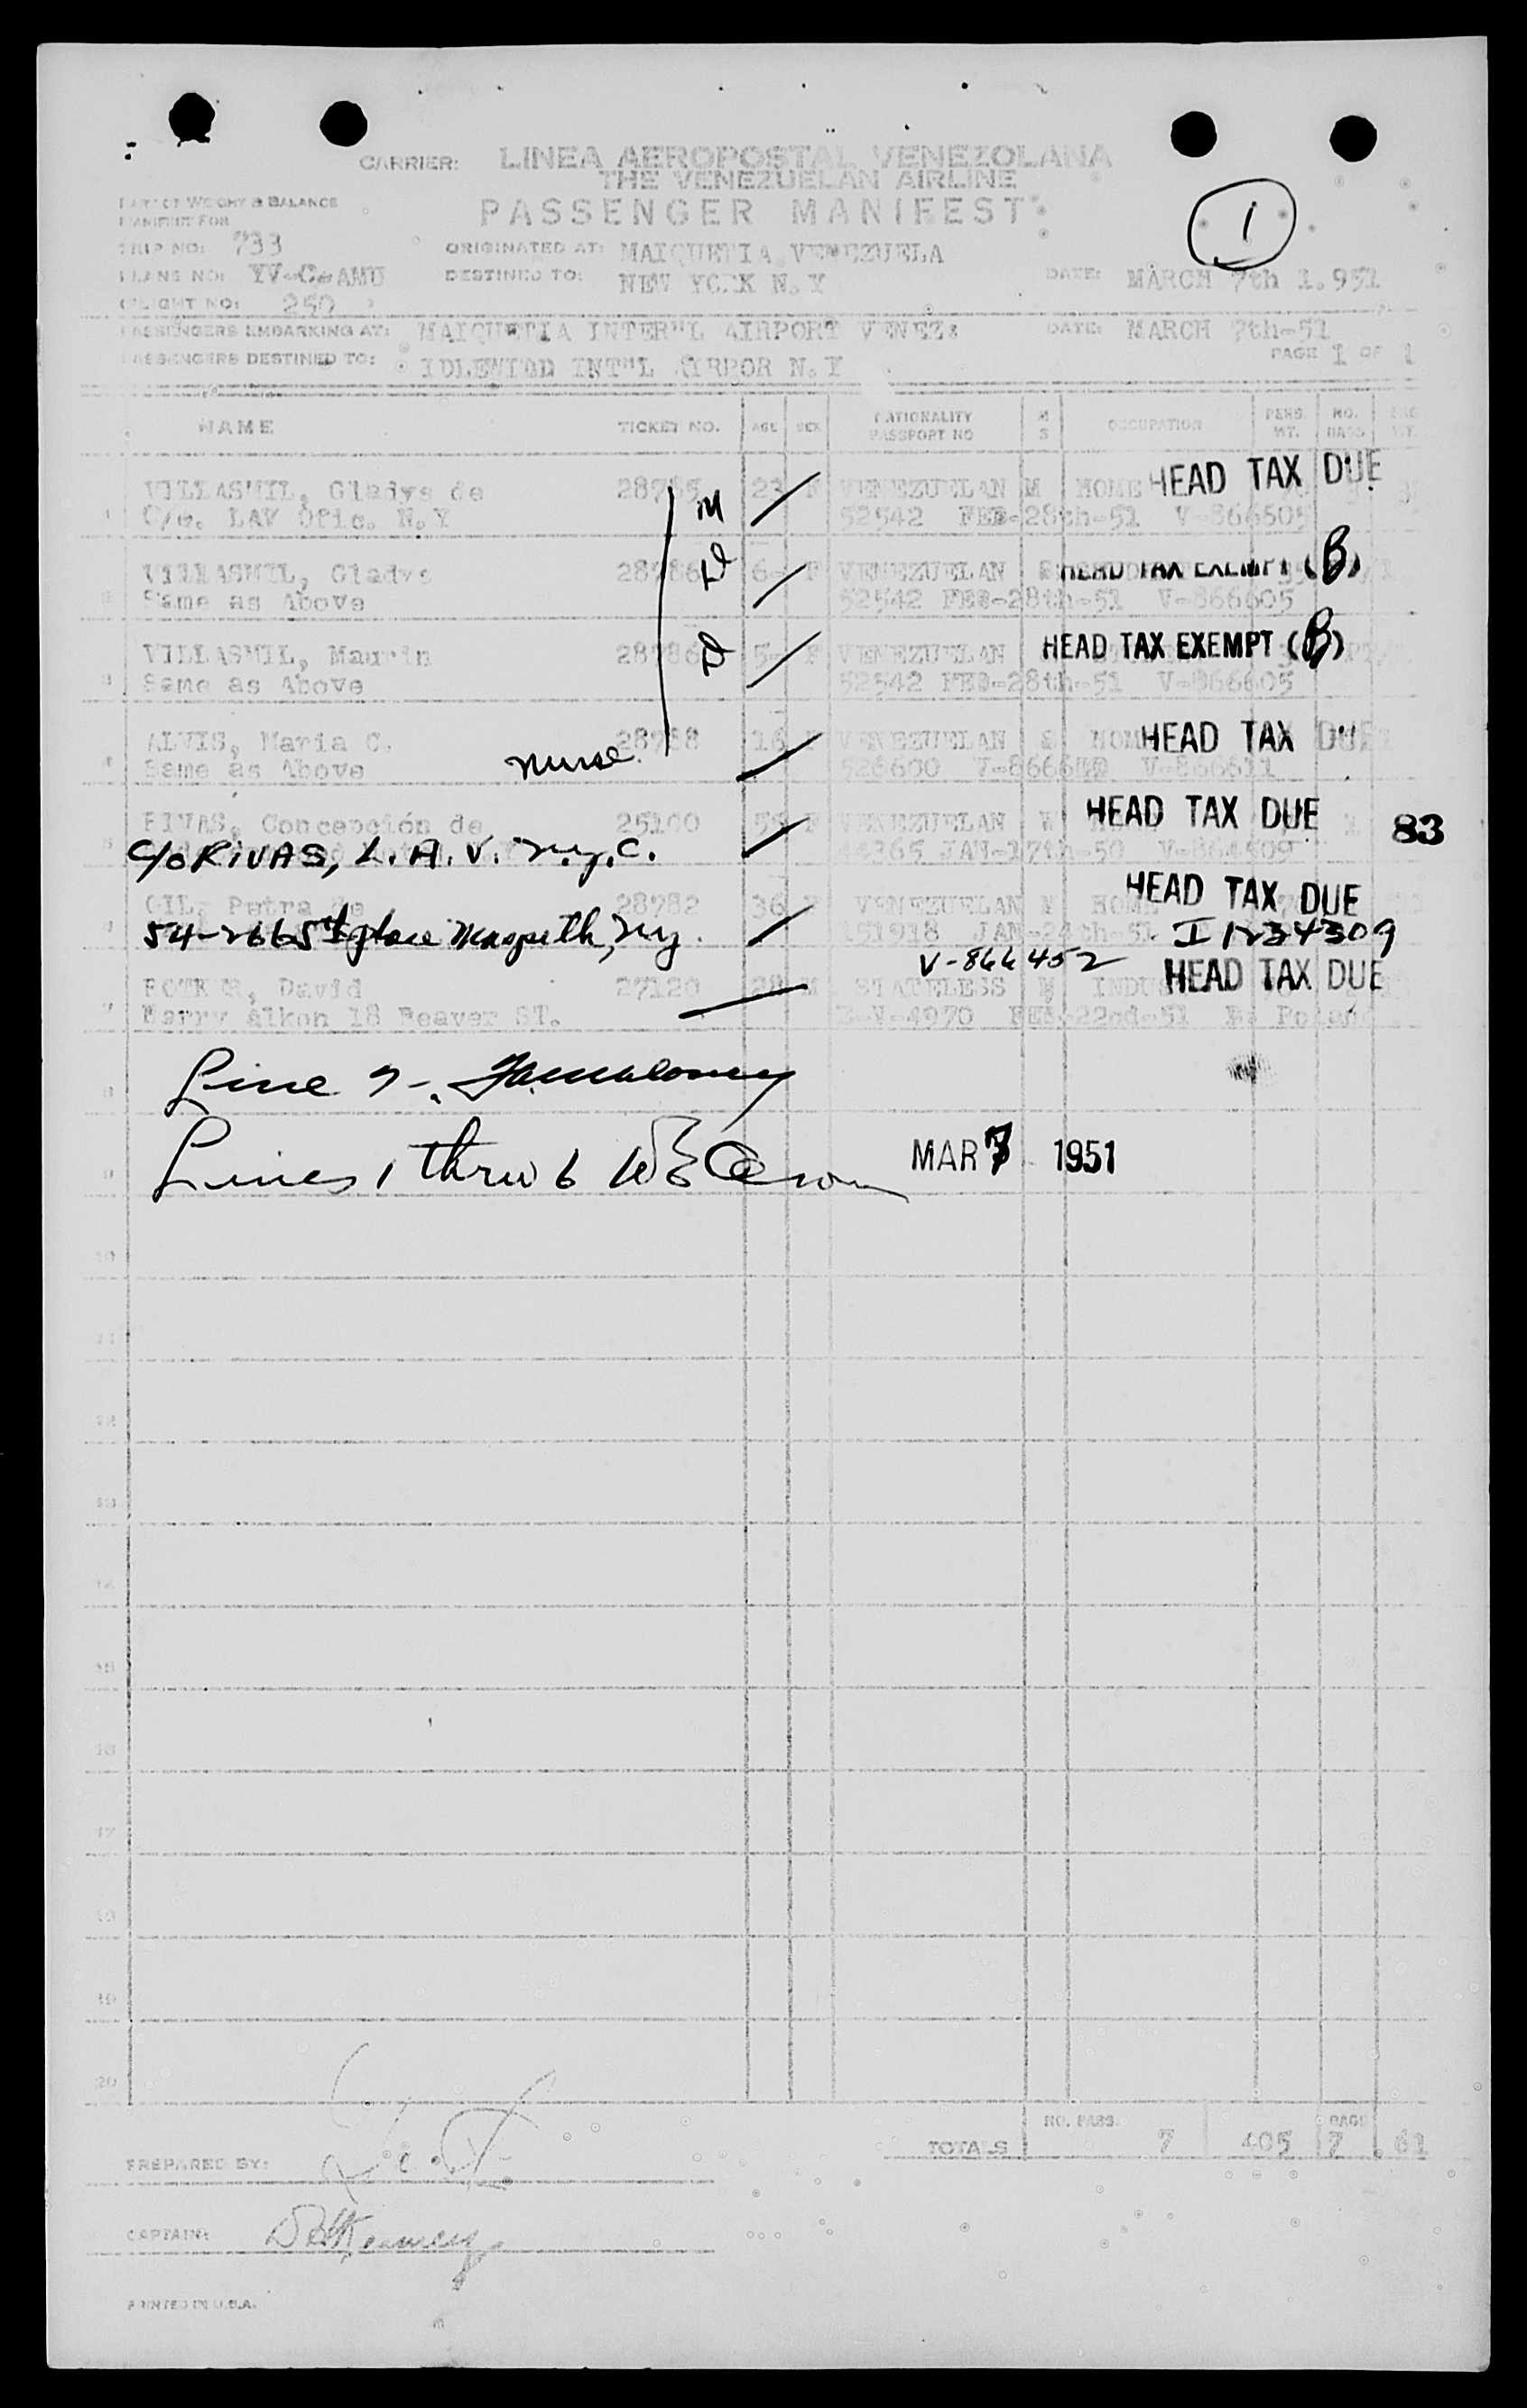 CARRIER: LINEA AEROPOSTAL VENEZOLANA
THE VENEZUELAN AIRLINE
PASSENGER MANIFEST
WEIGHT & BALANCE
MANIFEST FOR
TRIP NO: 733 ORIGINATED AT: MAIQUETIA VENEZUELA
1
PLANE NO: YV-C-AMU DESTINED TO: NEW YORK N.Y DATE: MARCH 7th 1.951
FLIGHT NO: 250
PASSENGERS EMBARKING AT: MAIQUETIA INTER"L AIRPORT VENEZ: DATE: MARCH 7th-51
PASSENGERS DESTINED TO: IDLEWIDD INT"L N.Y PAGE 1 OF 1
NAME TICKET NO. AGE SEX NATIONALITY PASSPORT NO M S OCCUPATION PERS. WT. NO. BAGS WT.
1 VILLASMIL, Gladys de 28785 M 23 F VENEZUELAN M HOME HEAD TAX DUE
C/o. LAV Ofic. N.Y 52542 FEB-28th-51 V-866605
VILLASMIL, Gladys 28786 D 6- F VENEZUELAN HEAD TAX EXEMPT (B)
Same as Above 52542 FEB-28th-51 V-866605
VILLASMIL, Maurin 28786 D 5- F VENEZUELAN HEAD TAX EXEMPT (B)
Same as Above 52542 FEB-28th-51 V-866605
ALVIS, Maria C. nurse 28788 16 F VENEZUELAN S HOME HEAD TAX DUE
Same as Above 526600 V-866611
RIVAS, Concepción de 25100 F VENEZUELAN HEAD TAX DUE 83
C/o RIVAS, L.A.V. N.Y.C. JAN-17th-50 V-864509
GIL, Petra de 28782 36 F VENEZUELAN M HOME HEAD TAX DUE
54-26 65th place Maspeth, NY 151918 JAN-24th-51 I 1234309
V-866452
David 27120 28 M STATELESS M HEAD TAX DUE
Harry alkon 18 Beaver ST. FEB-22nd-51 Poland
Line 7-
Lines 1 thru 6 MAR 7 1951
10
11
12
13
14
15
16
17
18
19
20
TOTALS NO. PASS. 7 405 BAGS 7 61
PREPARED BY:
CAPTAIN:
PRINTED IN U.S.A.